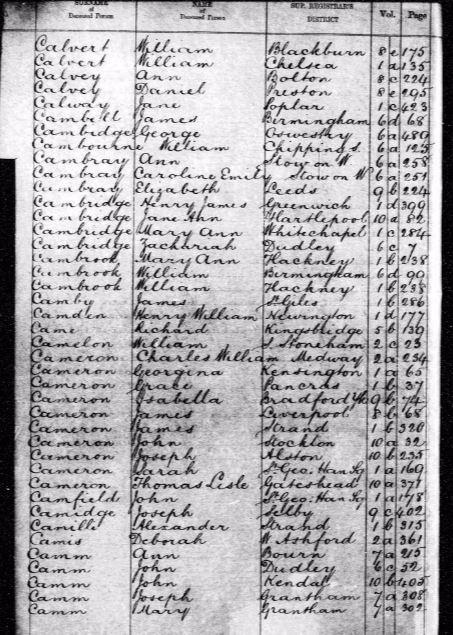 SURNAME of Deceased Person NAME of Deceased Person SUP. REGISTRAR'S DISTRICT Vol. Page
Calvert William Blackburn 8 e 175
Calvert William Chelsea 1 a 135
Calvey Ann Bolton 8 c 224
Calvey Daniel Preston 8 e 295
Calway Jane Poplar 1 c 423
Cambell James Birmingham 6 d 68
Cambridge George Oswestry 6 a 489
Cambourne William Chipping S. 6 a 125
Cambray Ann Stow on W. 6 a 258
Cambray Caroline Emily Stow on W 6 a 251
Cambray Elizabeth Leeds 9 b 224
Cambridge Henry James Greenwich 1 d 399
Cambridge Jane Ann Hartlepool 10 a 82
Cambridge Mary Ann Whitechapel 1 c 284
Cambridge Zachariah Dudley 6 c 7
Cambrook Mary Ann Hackney 1 b 238
Cambrook William Birmingham 6 d 99
Cambrook William Hackney 1 b 238
Camby James St Giles 1 b 286
Camden Henry William Newington 1 d 177
Came Richard Kingsbridge 5 b 139
Camelon William S. Stoneham 2 c 23
Cameron Charles William Medway 2 a 234
Cameron Georgina Kensington 1 a 65
Cameron Grace Pancras 1 b 37
Cameron Isabella Bradford Yk 9 b 74
Cameron James Liverpool 8 b 68
Cameron James Strand 1 b 320
Cameron John Stockton 10 a 32
Cameron Joseph Alston 10 b 235
Cameron Sarah St Geo: Han Sq 1 a 169
Cameron Thomas Lisle Gateshead 10 a 371
Camfield John St Geo: Han Sq 1 a 178
Camidge Joseph Selby 9 c 402
Camille Alexander Strand 1 b 315
Camis Deborah W Ashford 2 a 361
Camm Ann Bourn 7 a 215
Camm John Dudley 6 c 52
Camm John Kendal 10 b 405
Camm Joseph Grantham 7 a 308
Camm Mary Grantham 7 a 302